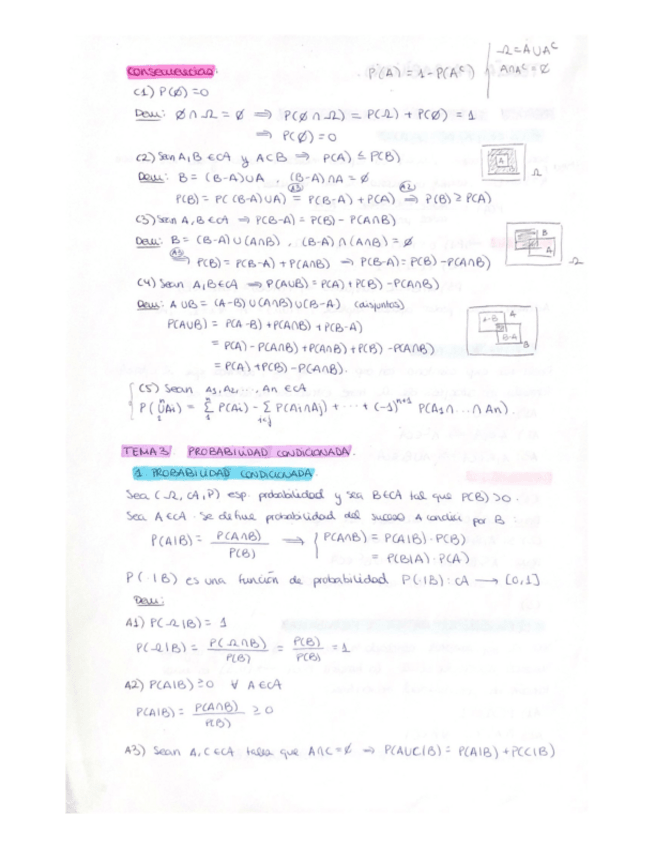 Ω = A ∪ Aᶜ
Consecuencias. P(A) = 1 - P(Aᶜ) A∩Aᶜ = ∅
C1) P(∅) = 0
Dem: ∅ ∩ Ω = ∅ ⟹ P(∅ ∩ Ω) = P(Ω) + P(∅) = 1
⟹ P(∅) = 0
C2) Sean A, B ∈ cA y A⊂B ⟹ P(A) ≤ P(B)
A
Ω
Dem: B = (B-A)∪A , (B-A)∩A = ∅
P(B) = P((B-A)∪A) =(A3) P(B-A) + P(A) ⟹(A2) P(B) ≥ P(A)
C3) Sean A, B ∈ cA ⟹ P(B-A) = P(B) - P(A∩B)
B
A
Ω
Dem: B = (B-A) ∪ (A∩B) , (B-A) ∩ (A∩B) = ∅
⟹(A3) P(B) = P(B-A) + P(A∩B) ⟹ P(B-A) = P(B) - P(A∩B)
C4) Sean A, B ∈ cA ⟹ P(A∪B) = P(A) + P(B) - P(A∩B)
Dem: A ∪ B = (A-B) ∪ (A∩B) ∪ (B-A) (disjuntos)
A-B A
B-A
B
P(A∪B) = P(A-B) + P(A∩B) + P(B-A)
= P(A) - P(A∩B) + P(A∩B) + P(B) - P(A∩B)
= P(A) + P(B) - P(A∩B).
C5) Sean A₁, A₂, ..., An ∈ cA
P(⋃₁ⁿ Ai) = Σ₁ⁿ P(Ai) - Σ_{i<j} P(Ai∩Aj) + ··· + (-1)ⁿ⁺¹ P(A₁∩...∩An).
TEMA 3. PROBABILIDAD CONDICIONADA.
1. PROBABILIDAD CONDICIONADA.
Sea (Ω, cA, P) esp. probabilidad y sea B∈cA tal que P(B) > 0.
Sea A ∈ cA. Se define probabilidad del suceso A condic. por B :
P(A|B) = P(A∩B) / P(B) ⟹ { P(A∩B) = P(A|B) · P(B)
= P(B|A) · P(A)
P(·|B) es una función de probabilidad P(·|B) : cA ⟶ [0,1]
Dem:
A1) P(Ω|B) = 1
P(Ω|B) = P(Ω∩B) / P(B) = P(B) / P(B) = 1
A2) P(A|B) ≥ 0 ∀ A ∈ cA
P(A|B) = P(A∩B) / P(B) ≥ 0
A3) Sean A, C ∈ cA tales que A∩C = ∅ ⟹ P(A∪C|B) = P(A|B) + P(C|B)